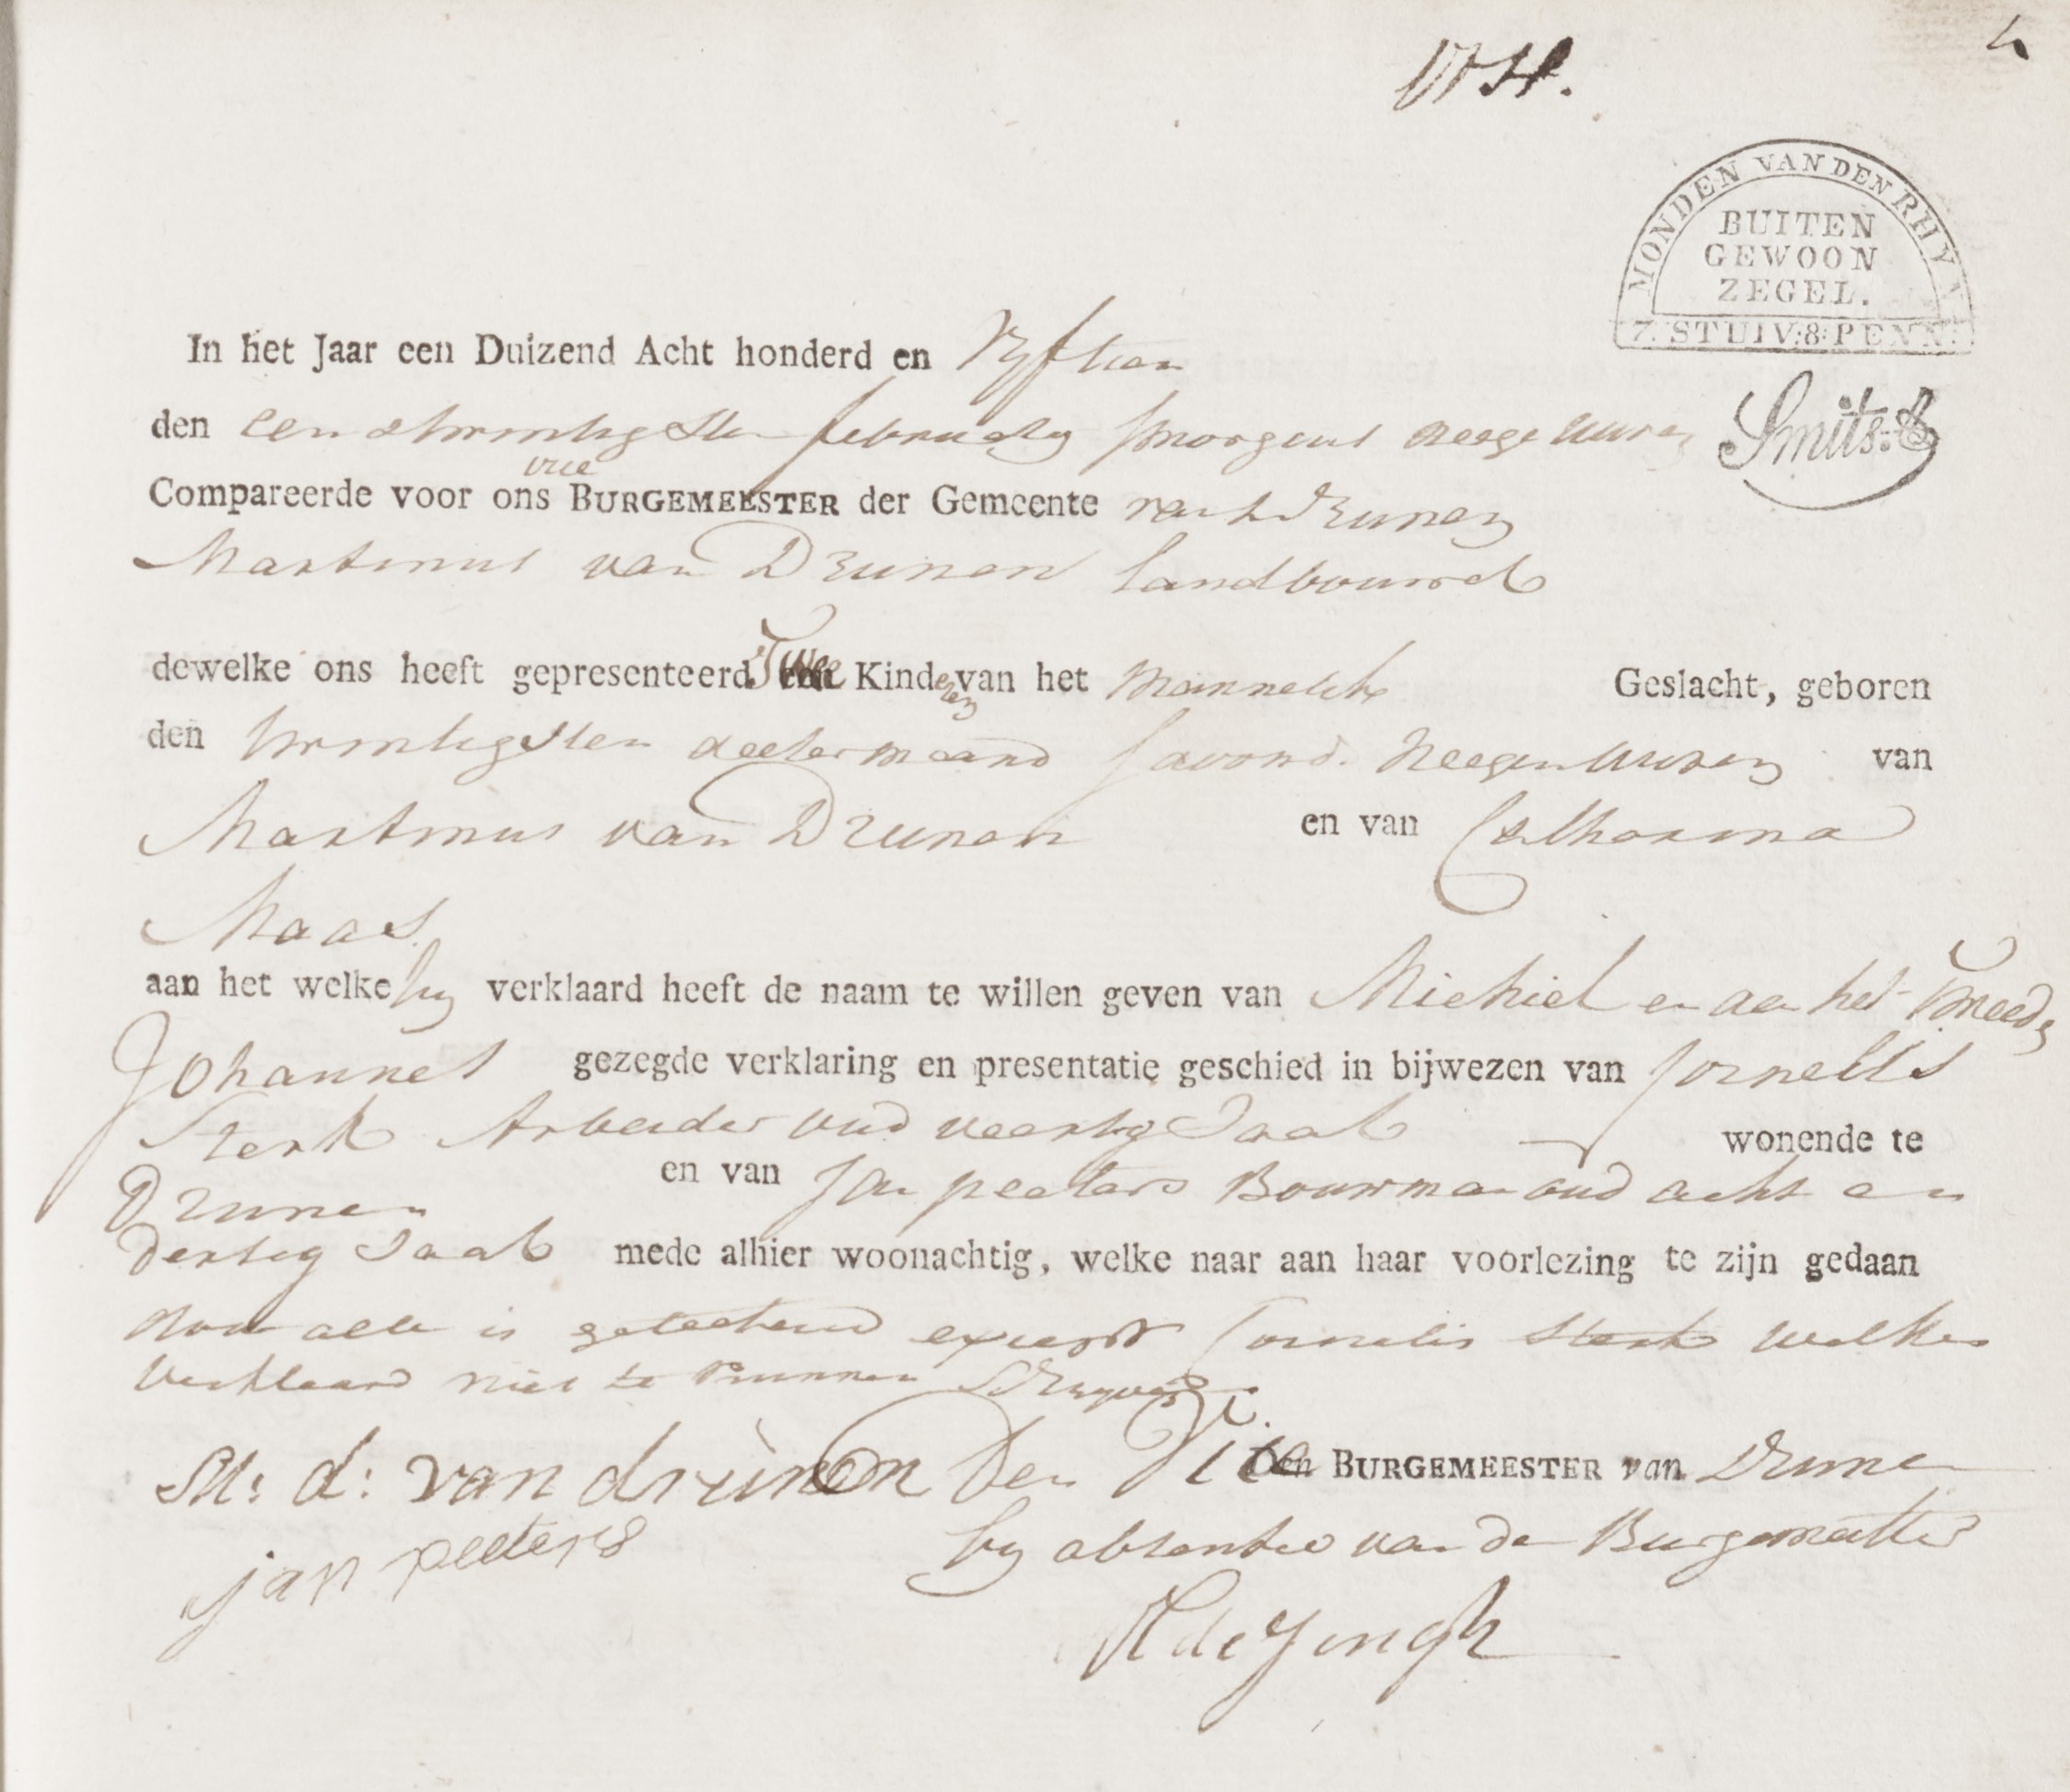 4
MONDEN VAN DEN RHYN
BUITEN
GEWOON
ZEGEL.
7. STUIV: 8: PENN:
Smits:
In het Jaar een Duizend Acht honderd en Vyftien
den eentwintigsten february smorgens neege uuren
vice
Compareerde voor ons BURGEMEESTER der Gemeente van Drunen
Martinus van Drunen landbouwer
dewelke ons heeft gepresenteerd Twee Kinderen van het mannelike Geslacht, geboren
den twintigsten deeser maand savond. neegen uuren van
Martinus van Drunen en van Catharina
Maas
aan het welke hy verklaard heeft de naam te willen geven van Michiel en aan het Tweede
Johannes gezegde verklaring en presentatie geschied in bijwezen van Cornelis
Sterk Arbeider oud veertig Jaar wonende te
Drunen en van Jan peeters Bouwman oud acht en
dertig Jaar mede alhier woonachtig, welke naar aan haar voorlezing te zijn gedaan
door alle is geteekend except Cornelis Sterk welke
verklaard niet te kunnen Schryven
M: d: van drunen Den Vice BURGEMEESTER van Drunen
jan peeters by absentie van den Burgemeester
A de Jongh